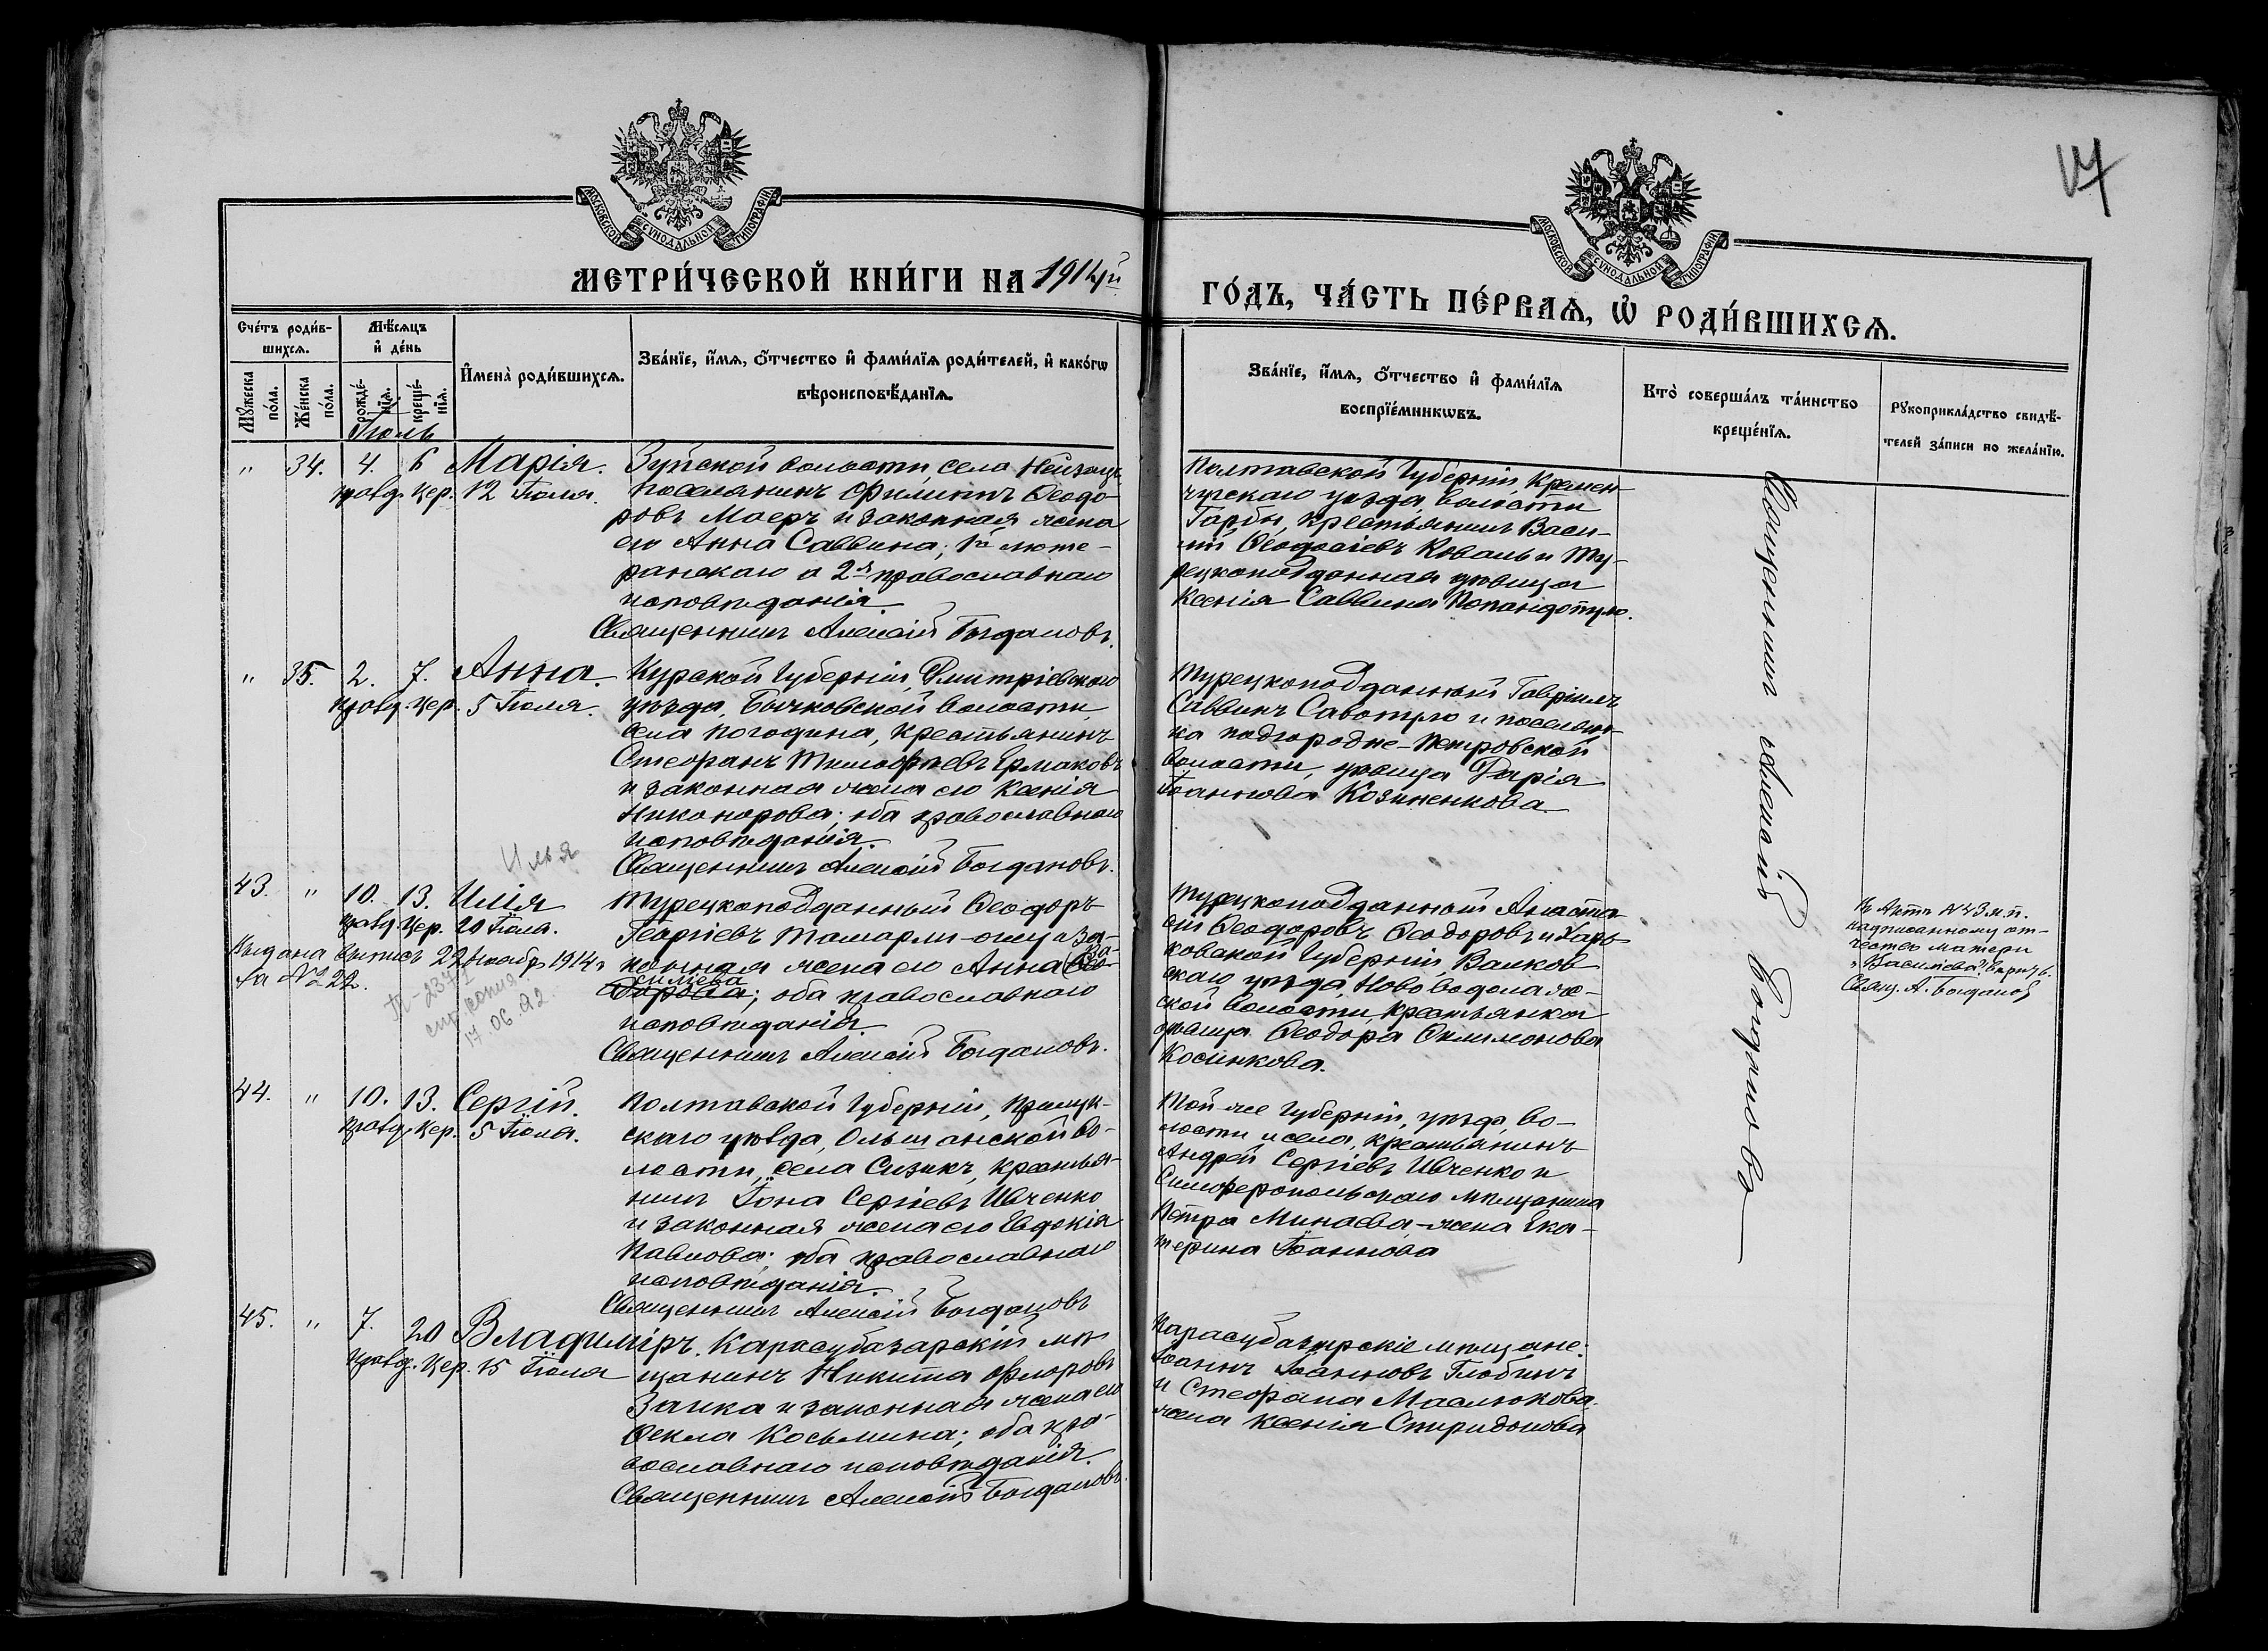 17
МОСКОВСКОЙ СѴНОДАЛЬНОЙ ТИПОГРАФІИ
МОСКОВСКОЙ СѴНОДАЛЬНОЙ ТИПОГРАФІИ
МЕТРИ́ЧЕСКОЙ КНИ́ГИ НА 1914й
ГО́ДЪ, ЧА́СТЬ ПЕ́РВАѦ, Ѡ҆ РОДИ́ВШИХСѦ.
Сче́тъ роди́в-
шихсѧ.
Мꙋ́жеска по́ла.
Же́нска по́ла.
Мѣ́сѧцъ
и҆ де́нь
рожде́-
нїѧ.
креще́-
нїѧ.
И҆мена̀ роди́вшихсѧ.
Зва́нїе, и҆́мѧ, ѻ҆́тчество и҆ фами́лїѧ роди́телей, и҆ како́гѡ
вѣроисповѣ́данїѧ.
Зва́нїе, и҆́мѧ, ѻ҆́тчество и҆ фами́лїѧ
воспрїе́мникѡвъ.
Кто̀ соверша́лъ та́инство
креще́нїѧ.
Рꙋкоприкла́дство свидѣ́-
телей за́писи по жела́нїю.
Іюль
" 34. 4. 6 Марія.
правд. цер. 12 Іюля.
Зуйской волости, села Нейзацъ
поселянинъ Филиппъ Ѳеодо-
ровъ Маеръ и законная жена
его Анна Саввина; 1й люте-
ранскаго а 2я православнаго
исповѣданія.
Священникъ Алексій Богдановъ.
Полтавской Губерніи, Кремен-
чугскаго уѣзда, волости
крестьянинъ Васи-
лій Ѳеодосіевъ Коваль и ту-
рецкоподданная дѣвица
Ксенія Саввина Попандопуло.
" 35. 2. 7. Анна.
правд. цер. 5 Іюля.
Курской Губерніи, Дмитріевскаго
уѣзда, Бычковской волости,
села Погодина, крестьянинъ
Стефанъ Тимофеевъ Ермаковъ
и законная жена его Ксенія
Никонорова; оба православнаго
исповѣданія.
Священникъ Алексій Богдановъ.
Турецкоподданный Гавріилъ
Саввинъ Савопуло и поселян-
ка Подгородне-Петровской
волости, дѣвица Дарія
Іоаннова Козиненкова.
Илья
43. " 10. 13. Илія
правд. цер. 20 Іюля.
Выдана выпись 22 1914 г.
за № 22.
17.06.92
Турецкоподданный Ѳеодоръ
Георгіевъ Тамарли-оглу и за-
конная жена его Анна Ва-
сильева; оба православнаго
исповѣданія.
Священникъ Алексій Богдановъ.
Турецкоподданный Анаста-
сій Ѳеодоровъ Ѳеодоровъ и Харь-
ковской Губерніи, Валков-
скаго уѣзда, Нововодолаж-
ской волости, крестьянка
дѣвица Ѳеодора Филимонова
Косинкова.
Въ актѣ № 43 м. п.
надписанному от-
чество матери
"Васильева" вѣрить.
Свящ. А. Богдановъ
44. " 10. 13. Сергій.
правд. цер. 5 Іюля.
Полтавской Губерніи, Прилук-
скаго уѣзда, Ольшанской во-
лости, села крестья-
нинъ Іона Сергіевъ Ивченко
и законная жена его Евдокія
Павлова; оба православнаго
исповѣданія.
Священникъ Алексій Богдановъ
Той-же Губерніи, уѣзда, во-
лости и села, крестьянинъ
Андрей Сергіевъ Ивченко и
Симферопольскаго мѣщанина
Петра Минаева-жена Ека-
терина Іоаннова
45. " 7. 20 Владиміръ.
правд. цер. 15 Іюля
Карасубазарскій мѣ-
щанинъ Никита Флоровъ
Заика и законная жена его
Ѳекла Косьмина; оба пра-
вославнаго исповѣданія.
Священникъ Алексій Богдановъ.
Карасубазарскіе мѣщане:
Іоаннъ Іоанновъ Глобинъ
и Стефана Маслюкова
жена Ксенія Спиридонова
Священникъ Алексій Богдановъ